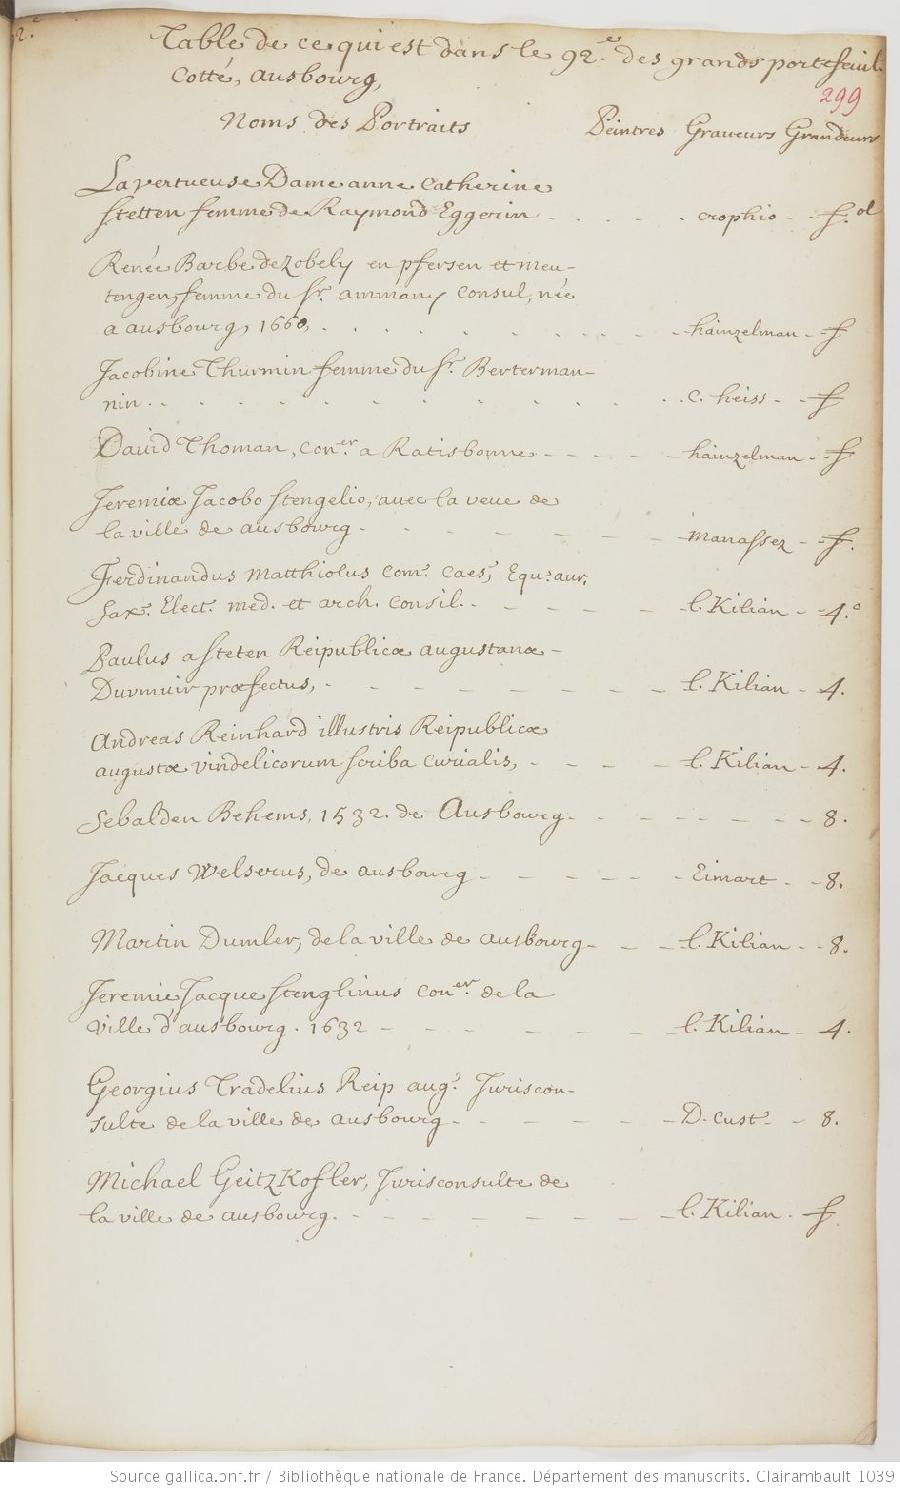 2.e
Table de ce qui est dans le 92.e des grands portefeuil.
Cotté, ausbourg,
299
Noms des Portraits Peintres Graveurs Grandeurs
La vertueuse Dame anne Catherine
stetten femme de Raymond Eggerin - - - - crophio - f.ol
Renée Barbe de Zobely en pfersen et meu-
tengen, femme du Sr. ammany Consul, née
a ausbourg, 1660, . . . . . . hainzelman - f
Jacobine Thurmin femme du Sr. Berterman-
nin . . . . . . . . . C. heiss - f
David Thoman, coner. a Ratisbonne - - - - hainzelman - f
Jeremiæ Jacobo Stengelio, avec la veue de
la ville de ausbourg - - - - - - manassez - f.
Ferdinandus Matthiolus com. Caes, Equ. aur.
Sax. Elect. med. et arch. Consil. - - - - l. Kilian - 4.o
Paulus a steten Reipublicæ augustanæ -
Duumuir præfectus, - - - - - - l. Kilian - 4.
Andreas Reinhard illustris Reipublicæ
augustæ vindelicorum scriba curialis, - - - - l. Kilian - 4.
Sebalden Behems, 1532. de Ausbourg - - - - - - 8.
Jacques Welserus, de ausbourg - - - - - Eimart - 8.
Martin Dumler, de la ville de ausbourg - - - l. Kilian - 8.
Jeremie Jacque Stenglinus coner. de la
ville d'ausbourg. 1632 - - - - - l. Kilian - 4.
Georgius Tradelius Reip aug. Juriscon-
sulte de la ville de ausbourg - - - - - D. Cust. - 8.
Michael Geitzkofler, Jurisconsulte de
la ville de ausbourg. - - - - - - l. Kilian - f.
Source gallica.bnf.fr / Bibliothèque nationale de France. Département des manuscrits. Clairambault 1039